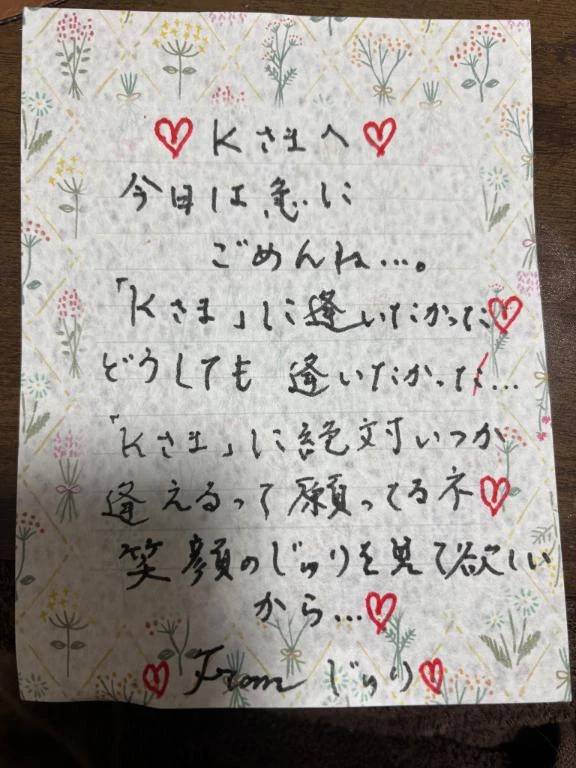 ♡Kさまへ♡
今日は急に
ごめんね…。
「Kさま」に逢いたかった♡
どうしても逢いたかった…
「Kさま」に絶対いつか
逢えるって願ってるネ♡
笑顔のじゅりを見て欲しい
から…♡
♡From じゅり♡